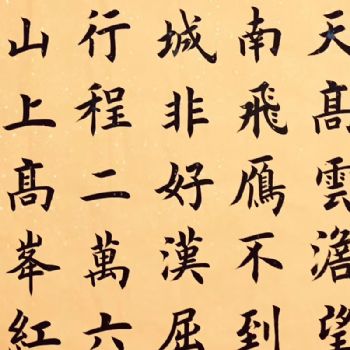 天高雲澹望
南飛鴈不到
城非好漢屈
行程二萬六
山上高峯紅